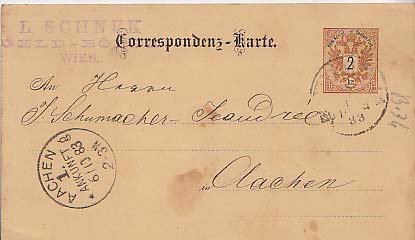 L. SCHNEK
GELD-BÖ
WIEN.
Correspondenz-Karte.
2
KR.
An Herrn
J. Schumacher-Jeandrée
in Aachen
AACHEN
1
ANKUNFT
6/10 83
2-3N
83